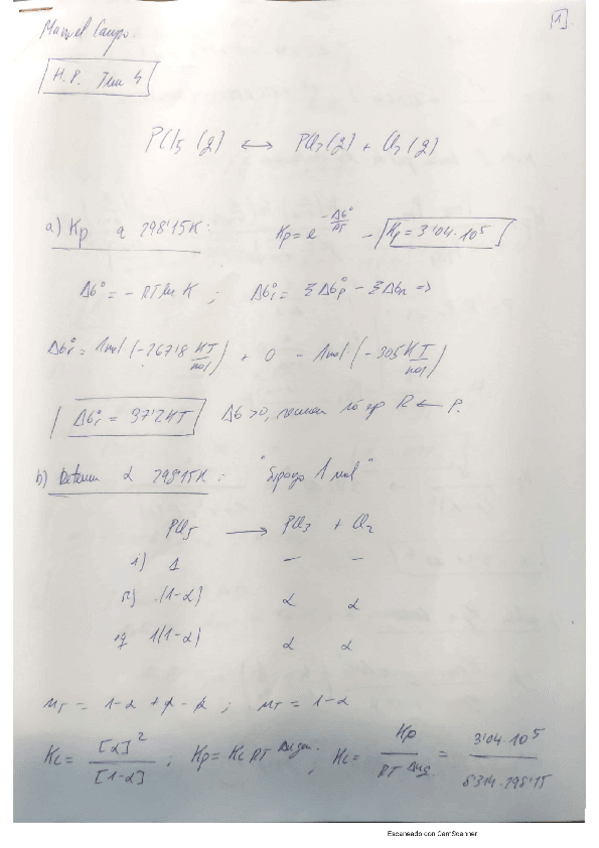 Manuel Campo.
[1]
H.P. Tema 4
PCl5 (g) ⟷ PCl3 (g) + Cl2 (g)
a) Kp a 298'15K: Kp = e^(-ΔG°/RT) - Kp = 3'04·10^5
ΔG° = -RT ln K ; ΔGr° = ΣΔGp° - ΣΔGR =>
ΔGr° = 1mol (-267'8 KJ/mol) + 0 - 1mol (-305 KJ/mol)
ΔGr° = 37'2 KJ ΔG>0, R ← P.
b) Determ α 298'15K: 1 mol"
PCl5 ⟶ PCl3 + Cl2
i) 1 — —
(1-α) α α
1(1-α) α α
nT = 1-α + α - α ; nT = 1-α
Kc = [α]^2 / [1-α] ; Kp = Kc RT^Δngas ; Kc = Kp / RT^Δng = 3'04·10^5 / 8'314·298'15
Escaneado con CamScanner